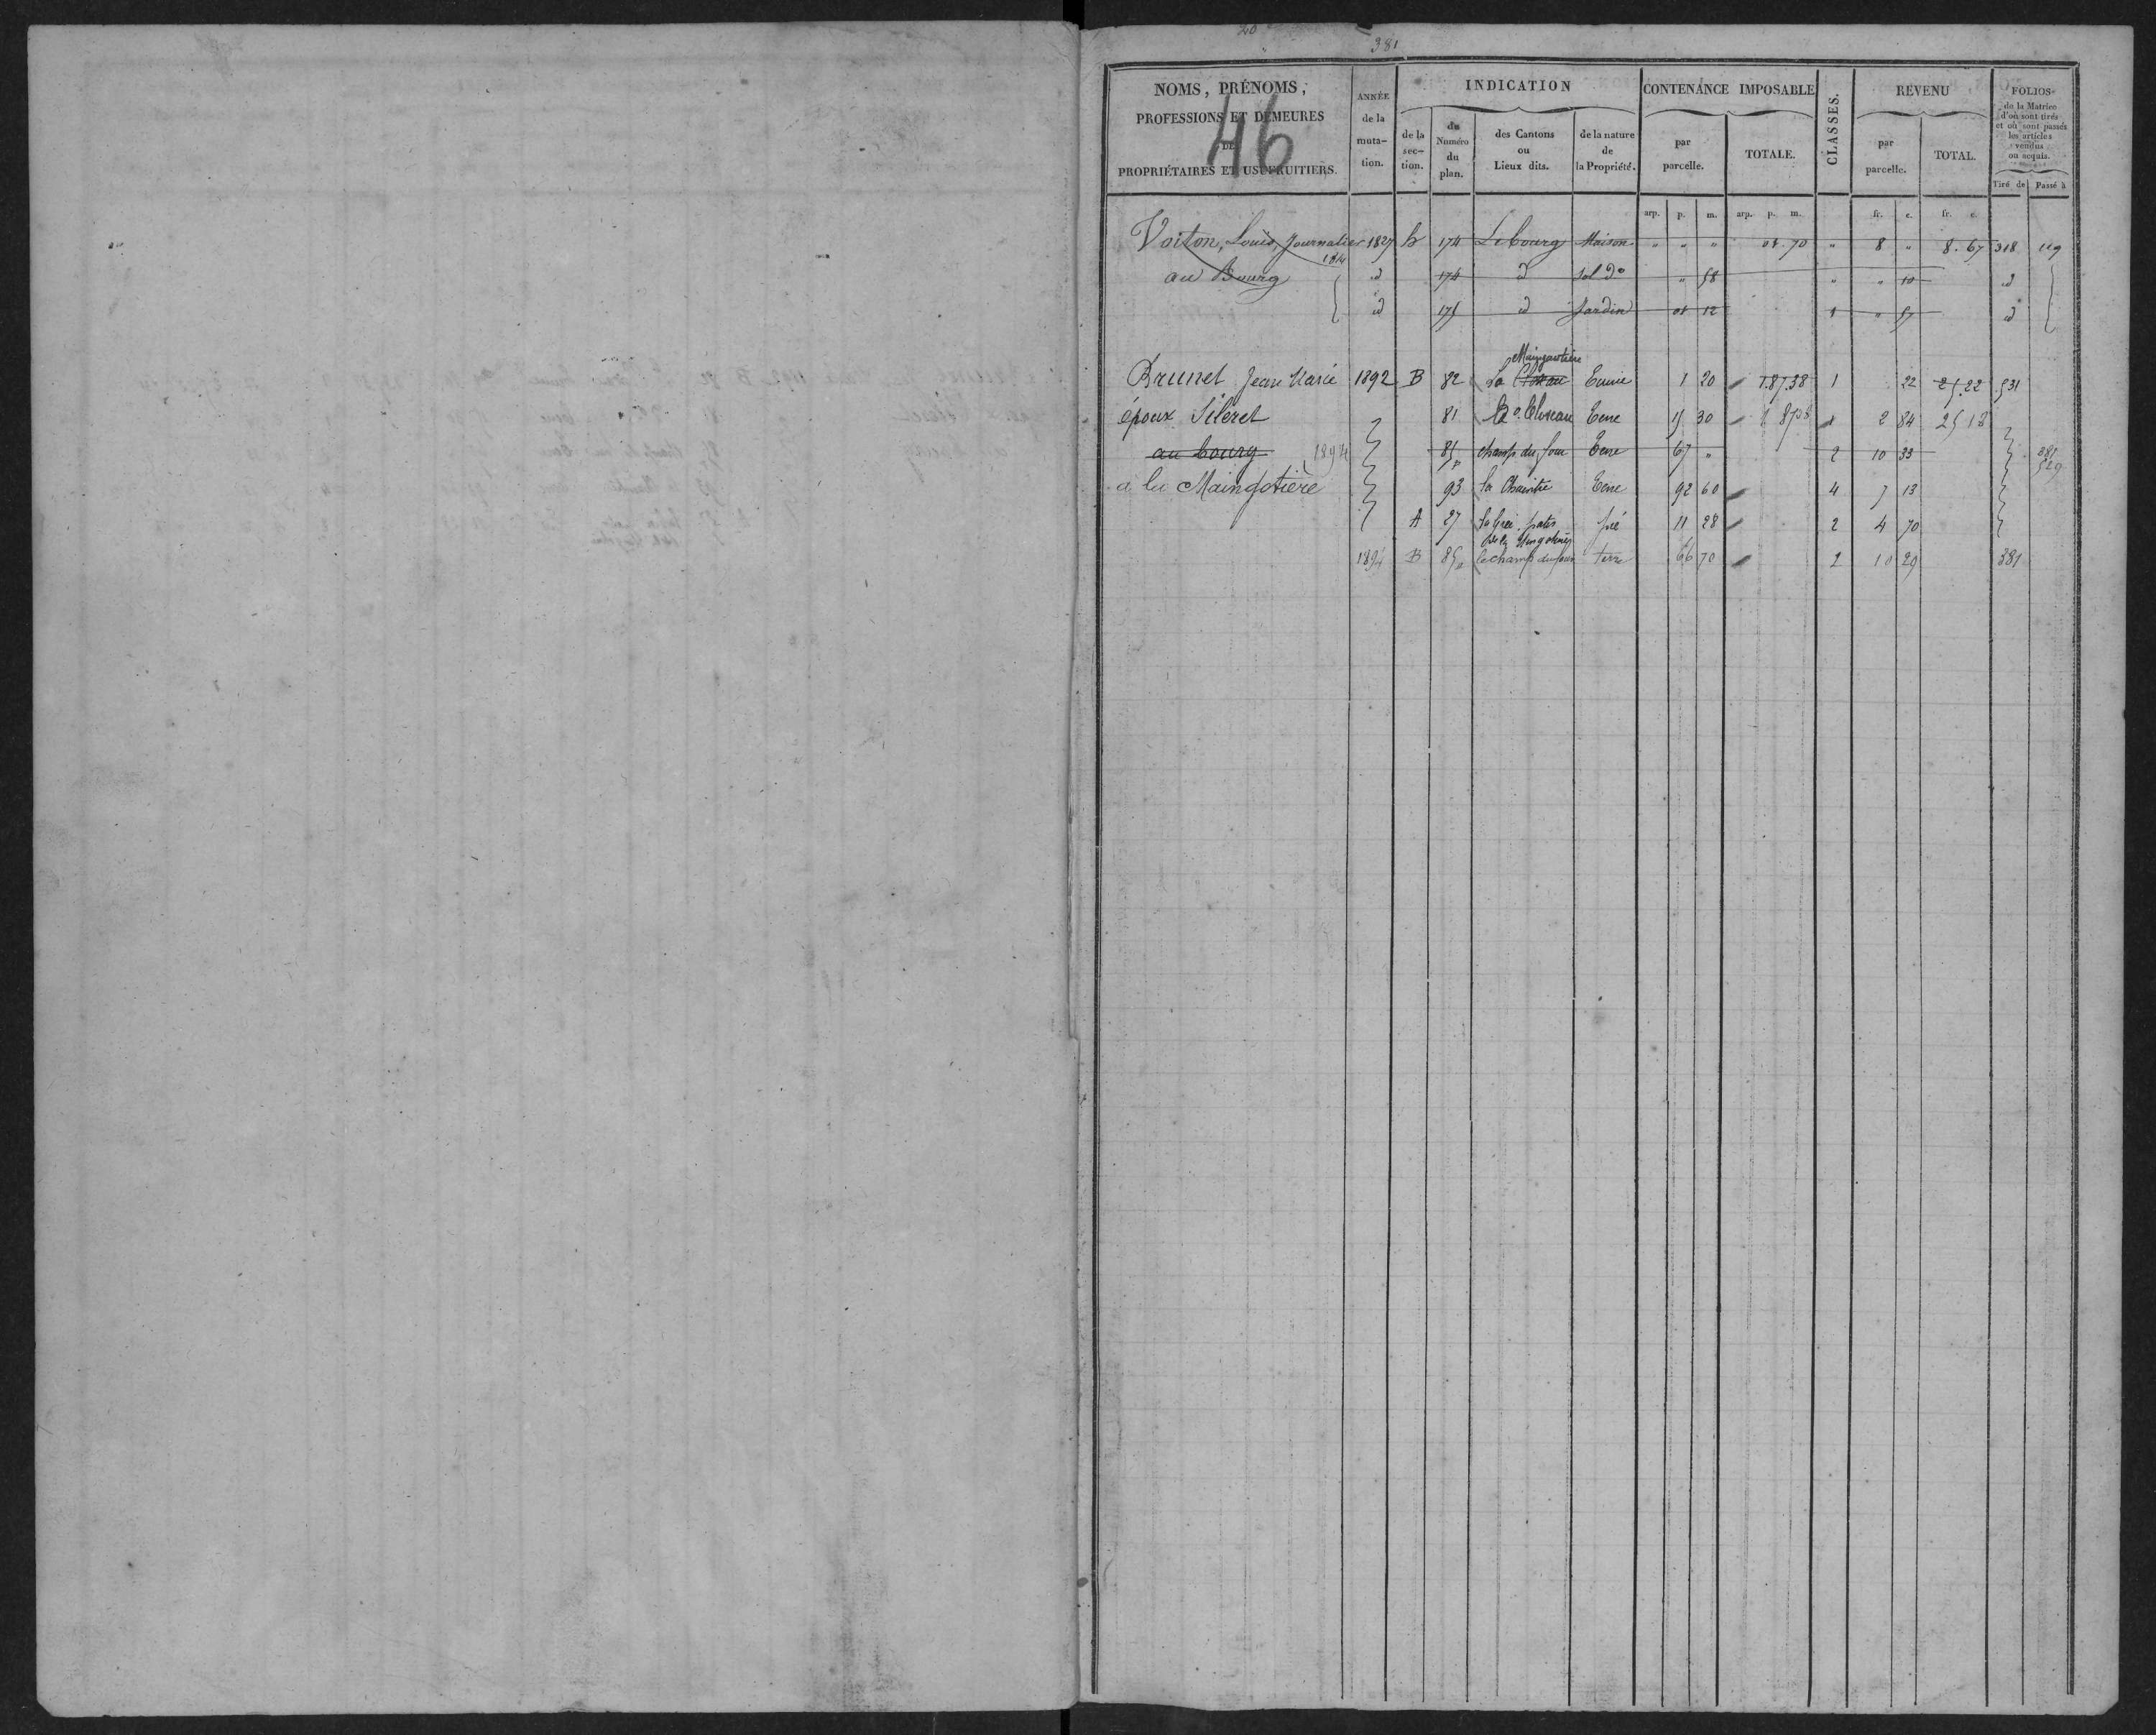 20
381
46
NOMS, PRÉNOMS, PROFESSIONS ET DEMEURES DE PROPRIÉTAIRES ET USUFRUITIERS.
ANNÉE de la muta-tion.
INDICATION
de la sec-tion.
du Numéro du plan.
des Cantons ou Lieux dits.
de la nature de la Propriété.
CONTENANCE IMPOSABLE
par parcelle.
TOTALE.
CLASSES.
REVENU
par parcelle.
TOTAL.
FOLIOS de la Matrice d'où sont tirés et où sont passés les articles vendus ou acquis.
Tiré de Passé à
arp. p. m. arp. p. m. fr. c. fr. c.
Voiton, Louis, Journalier 1827 174 Le bourg Maison " " " 01.70 " 8 " 8.67 318 119
1814
au Bourg id 174 id Sol do " 58 " " 10 id
id 175 id Jardin 01 12 1 " 57 id
Maingautière
Brunet Jean Marie 1892 B 82 La Closeau 1 20 1.87.38 1 22 25.22 531
époux Séleret 81 Closeau Terre 15 30 1 2 84 25 18
au bourg 1894 85p champ du four Terre 67 " 2 10 33 381 529
a la Maingotière 93 la Chaintre Terre 92 60 4 7 13
A 27 patis pré 11 28 2 4 70
1894 B 85p le champ du four terre 66 70 2 10 29 381